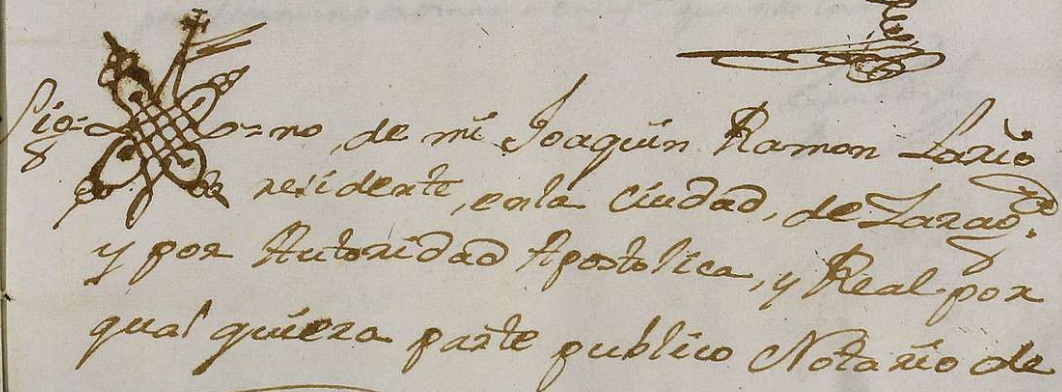 Sig=no, de mi Joaquin Ramon Lario
residente, en la Ciudad, de Zarag.ª
y por Autoridad Apostolica, y Real por
qual quiera parte publico Notario de